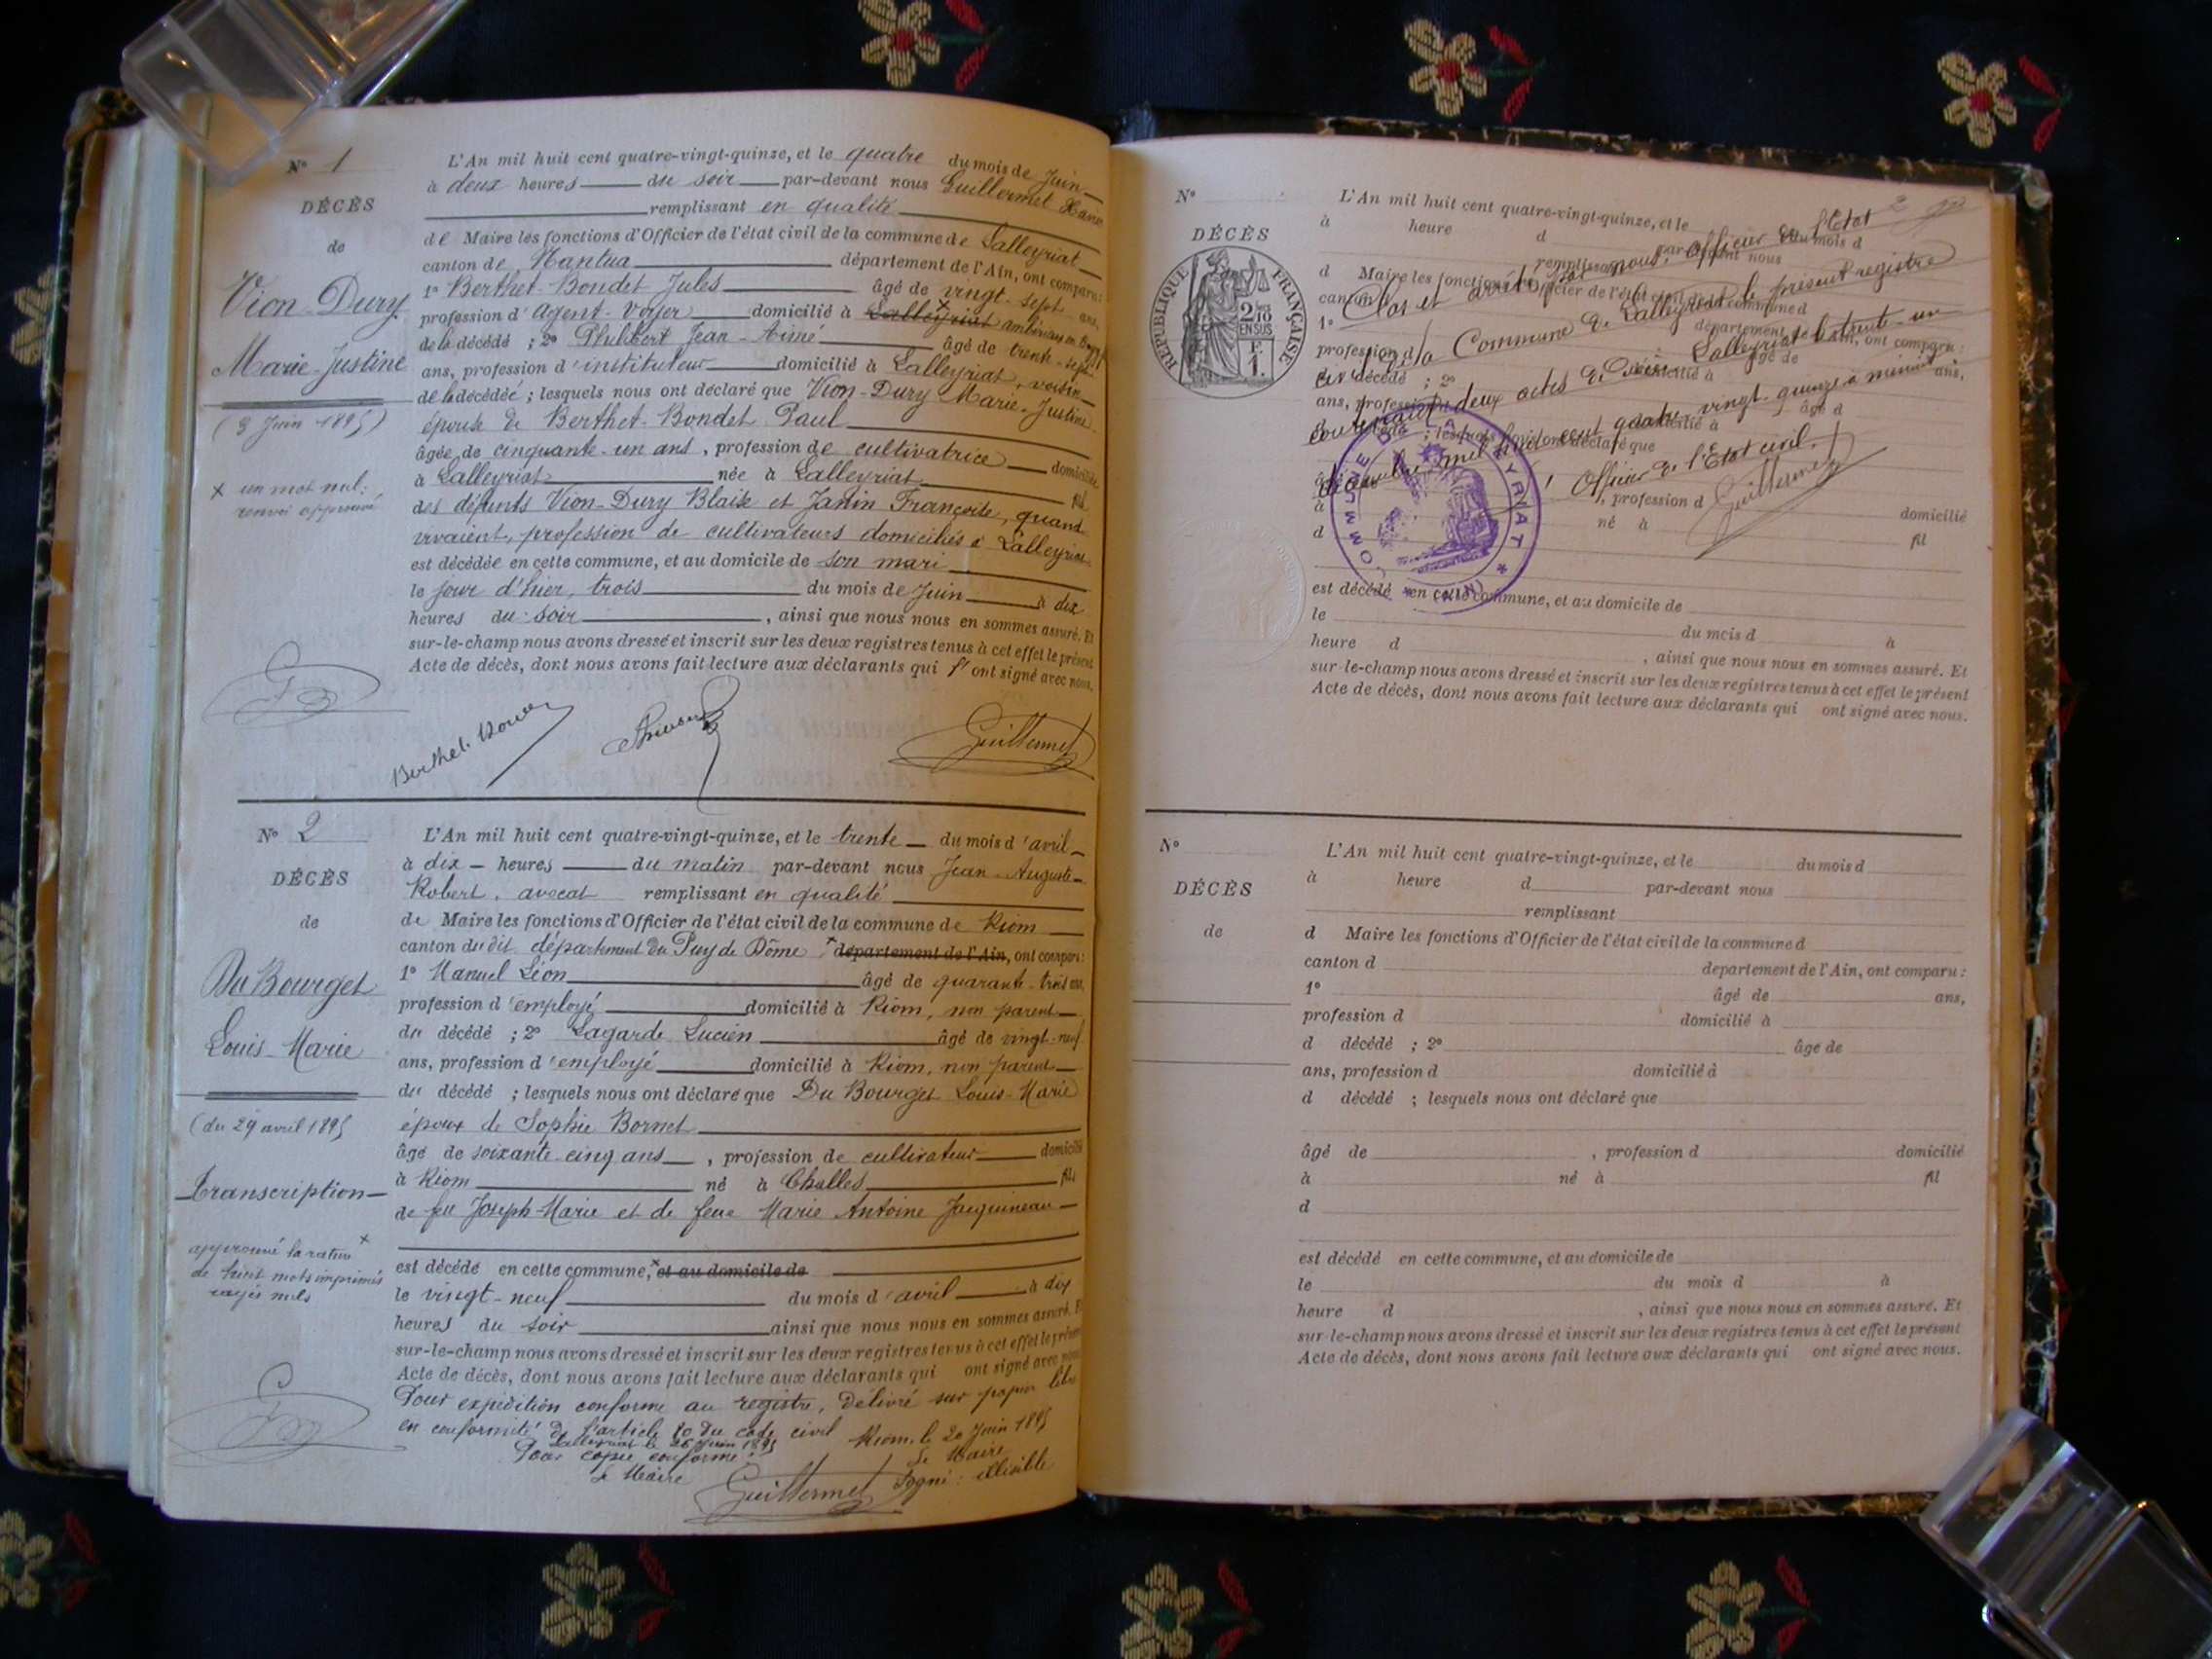 N° 1
DÉCÈS
de
Vion-Dury
Marie-Justine
(3 Juin 1895)
x un mot nul:
renvoi approuvé
L'An mil huit cent quatre-vingt-quinze, et le quatre du mois de Juin
à deux heures du soir par-devant nous Guillermet
remplissant en qualité
de Maire les fonctions d'Officier de l'état civil de la commune de Lalleyriat
canton de Nantua département de l'Ain, ont comparu:
1° Berthet-Bondet Jules âgé de vingt-sept ans,
profession d'agent-voyer domicilié à Lalleyriat
de la décédé ; 2° Philibert Jean-Aimé âgé de trente-sept
ans, profession d'instituteur domicilié à Lalleyriat, voisin
de la décédée ; lesquels nous ont déclaré que Vion-Dury Marie-Justine
épouse de Berthet-Bondet Paul
âgée de cinquante-un ans, profession de cultivatrice domicilié
à Lalleyriat née à Lalleyriat fil
des défunts Vion-Dury Blaise et Janin Françoise, quand
vivaient, profession de cultivateurs domiciliés à Lalleyriat
est décédée en cette commune, et au domicile de son mari
le jour d'hier, trois du mois de Juin à dix
heures du soir, ainsi que nous nous en sommes assuré. Et
sur-le-champ nous avons dressé et inscrit sur les deux registres tenus à cet effet le présent
Acte de décès, dont nous avons fait lecture aux déclarants qui l'ont signé avec nous.
Guillermet
N° 2
DÉCÈS
de
Du Bourget
Louis-Marie
(du 29 avril 1895
Transcription
approuvé la rature x
de huit mots imprimés
rayés nuls
L'An mil huit cent quatre-vingt-quinze, et le trente du mois d'avril
à dix heures du matin par-devant nous Jean-Auguste
Robert, avocat remplissant en qualité
de Maire les fonctions d'Officier de l'état civil de la commune de Riom
canton dudit département du Puy de Dôme x département de l'Ain, ont comparu:
1° Manuel Léon âgé de quarante-trois ans,
profession d'employé domicilié à Riom, non parent
du décédé ; 2° Lagarde Lucien âgé de vingt-neuf
ans, profession d'employé domicilié à Riom, non parent
du décédé ; lesquels nous ont déclaré que Du Bourget Louis-Marie
époux de Sophie Bornet
âgé de soixante-cinq ans, profession de cultivateur domicilié
à Riom né à Challes fils
de feu Joseph-Marie et de feue Marie Antoine Jacquineau
est décédé en cette commune, x et au domicile de
le vingt-neuf du mois d'avril à dix
heures du soir ainsi que nous nous en sommes assuré. Et
sur-le-champ nous avons dressé et inscrit sur les deux registres tenus à cet effet le présent
Acte de décès, dont nous avons fait lecture aux déclarants qui ont signé avec nous
Pour expédition conforme au registre, délivré sur papier libre
en conformité de l'article 80 du code civil Riom, le 20 Juin 1895
Lalleyriat le 26 Juin 1895 Le Maire
Pour copie conforme: Signé: illisible
Le Maire
Guillermet
N°
DÉCÈS
RÉPUBLIQUE FRANÇAISE
2/10
EN SUS
F.
1.
L'An mil huit cent quatre-vingt-quinze, et le
à heure d par-devant nous du mois d
remplissant
d Maire les fonctions d'Officier de l'état civil de la commune d
canton d département de l'Ain, ont comparu:
1° âgé de ans,
profession d domicilié à
d décédé ; 2°
ans, profession d domicilié à âgé d
d décédé ; lesquels nous ont déclaré que
, profession d domicilié
à né à fil
d
Clos et arrêté par nous, Officier de l'Etat
civil de la Commune de Lalleyriat le présent registre
contenant deux actes de Décès Lalleyriat le trente-un
décembre mil huit cent quatre-vingt-quinze à minuit
L'Officier de l'Etat civil.
Guillermet
COMMUNE DE LALLEYRIAT * (AIN) *
est décédé en cette commune, et au domicile de
le du mois d à
heure d , ainsi que nous nous en sommes assuré. Et
sur-le-champ nous avons dressé et inscrit sur les deux registres tenus à cet effet le présent
Acte de décès, dont nous avons fait lecture aux déclarants qui ont signé avec nous.
N°
DÉCÈS
de
L'An mil huit cent quatre-vingt-quinze, et le du mois d
à heure d par-devant nous
remplissant
d Maire les fonctions d'Officier de l'état civil de la commune d
canton d département de l'Ain, ont comparu:
1° âgé de ans,
profession d domicilié à
d décédé ; 2° âgé de
ans, profession d domicilié à
d décédé ; lesquels nous ont déclaré que
âgé de , profession d domicilié
à né à fil
d
est décédé en cette commune, et au domicile de
le du mois d à
heure d , ainsi que nous nous en sommes assuré. Et
sur-le-champ nous avons dressé et inscrit sur les deux registres tenus à cet effet le présent
Acte de décès, dont nous avons fait lecture aux déclarants qui ont signé avec nous.